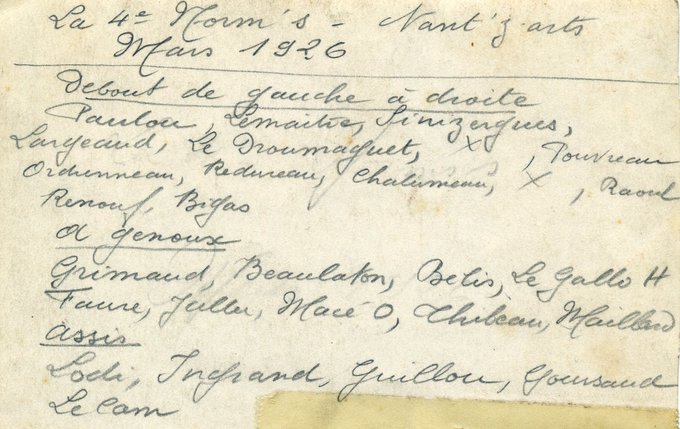 La 4e Norm's - Nant'z-arts
Mars 1926
Debout de gauche à droite
Paulou, Lemaitre, Sinizergues,
Largeaud, Le Droumaguet, X, Pouvreau
Ordonneau, Redureau, Chalumeau, X, Raoul
Renouf, Bigas
A genoux
Grimaud, Beaulaton, Belis, Le Gallo H
Faure, Juller, Macé O, Thibeau, Maillard
assis
Lodi, Ingrand, Guillou, Goursaud
Le Cam